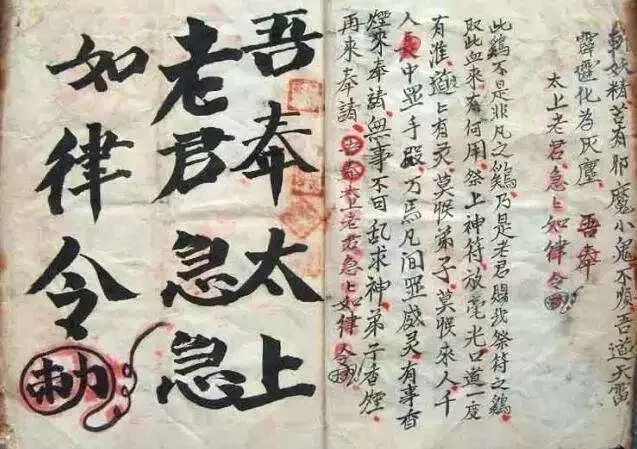 斬妖精若有邪魔小鬼不順吾道天雷
霹靂化為灰塵 吾奉
太上老君急上如律令
此鷄不是非凡之鷄乃是老君賜我祭符之鷄
取此血來有何用祭上神符放毫光口道一度
有准道上有灵莫猴弟子莫猴求人千
人中显手段万馬凡间显威灵有事香
煙來奉請無事不可乱求神弟子香煙
再來奉請吾奉太上老君急上如律令
吾奉太上
老君急急
如律令
勅